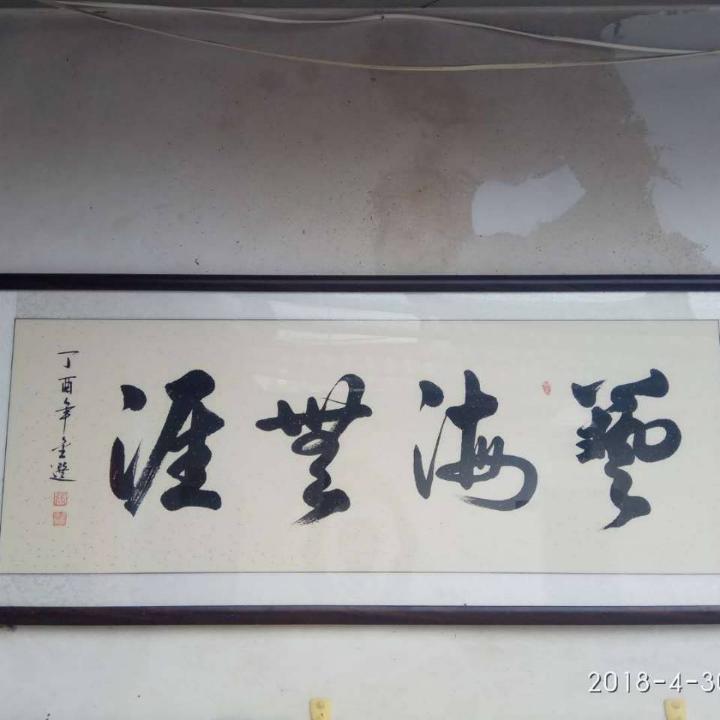 藝海無涯
丁酉年金選
2018-4-30